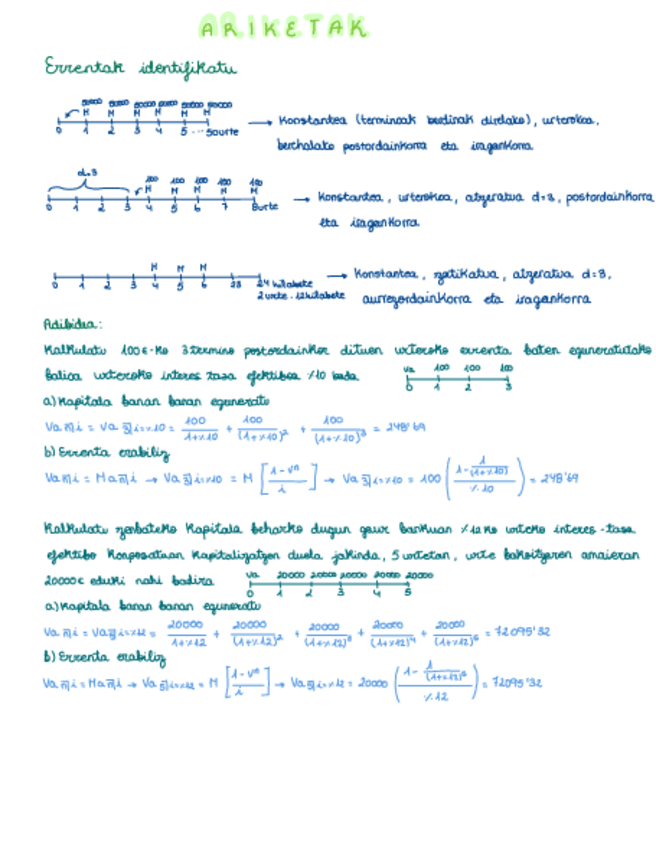 ARIKETAK
Errentak identifikatu
20000 20000 20000 20000 20000 20000
M M M M M M
0 1 2 3 4 5 ... 50urte
→ Konstantea (terminoak berdinak direlako), urterokoa,
berehalako postordainkorra eta iragankorra
d=3
100 100 100 100 100
M M M M M
0 1 2 3 4 5 6 7 8urte
→ Konstantea, urterokoa, atzeratua d=3, postordainkorra
eta iragankorra
M M M
0 1 2 3 4 5 6 23 24 hilabete
2 urte · 12 hilabete
→ Konstantea, zatikatua, atzeratua d=3,
aurreordainkorra eta iragankorra
Adibidea:
Kalkulatu 100€-ko 3 termino postordainkor dituen urteroko errenta baten eguneratutako
balioa urteroko interes tasa efektiboa %10 bada.
Va 100 100 100
0 1 2 3
a) Kapitala banan banan eguneratu
Va n̅| i = Va 3̅| i=%10 = 100/(1+%10) + 100/(1+%10)² + 100/(1+%10)³ = 248'69
b) Errenta erabiliz
Va n̅| i = M a n̅| i → Va 3̅| i=%10 = M [(1-vⁿ)/i] → Va 3̅| i=%10 = 100 ((1-1/(1+%10)³)/%10) = 248'69
Kalkulatu zenbateko kapitala beharko dugun gaur bankuan %12ko urteko interes-tasa
efektibo konposatuan kapitalizatzen duela jakinda, 5 urtetan, urte bakoitzaren amaieran
20000€ eduki nahi badira
Va 20000 20000 20000 20000 20000
0 1 2 3 4 5
a) Kapitala banan banan eguneratu
Va n̅| i = Va 5̅| i=%12 = 20000/(1+%12) + 20000/(1+%12)² + 20000/(1+%12)³ + 20000/(1+%12)⁴ + 20000/(1+%12)⁵ = 72095'32
b) Errenta erabiliz
Va n̅| i = M a n̅| i → Va 5̅| i=%12 = M [(1-vⁿ)/i] → Va 5̅| i=%12 = 20000 ((1-1/(1+%12)⁵)/%12) = 72095'32